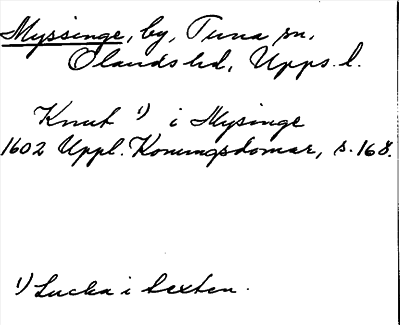 Myssinge, by, Tuna sn,
Olands hd, Upps. l.
Knut ¹) i Mysinge
1602 Uppl. Konungsdomar, s. 168.
¹) Lucka i texten.